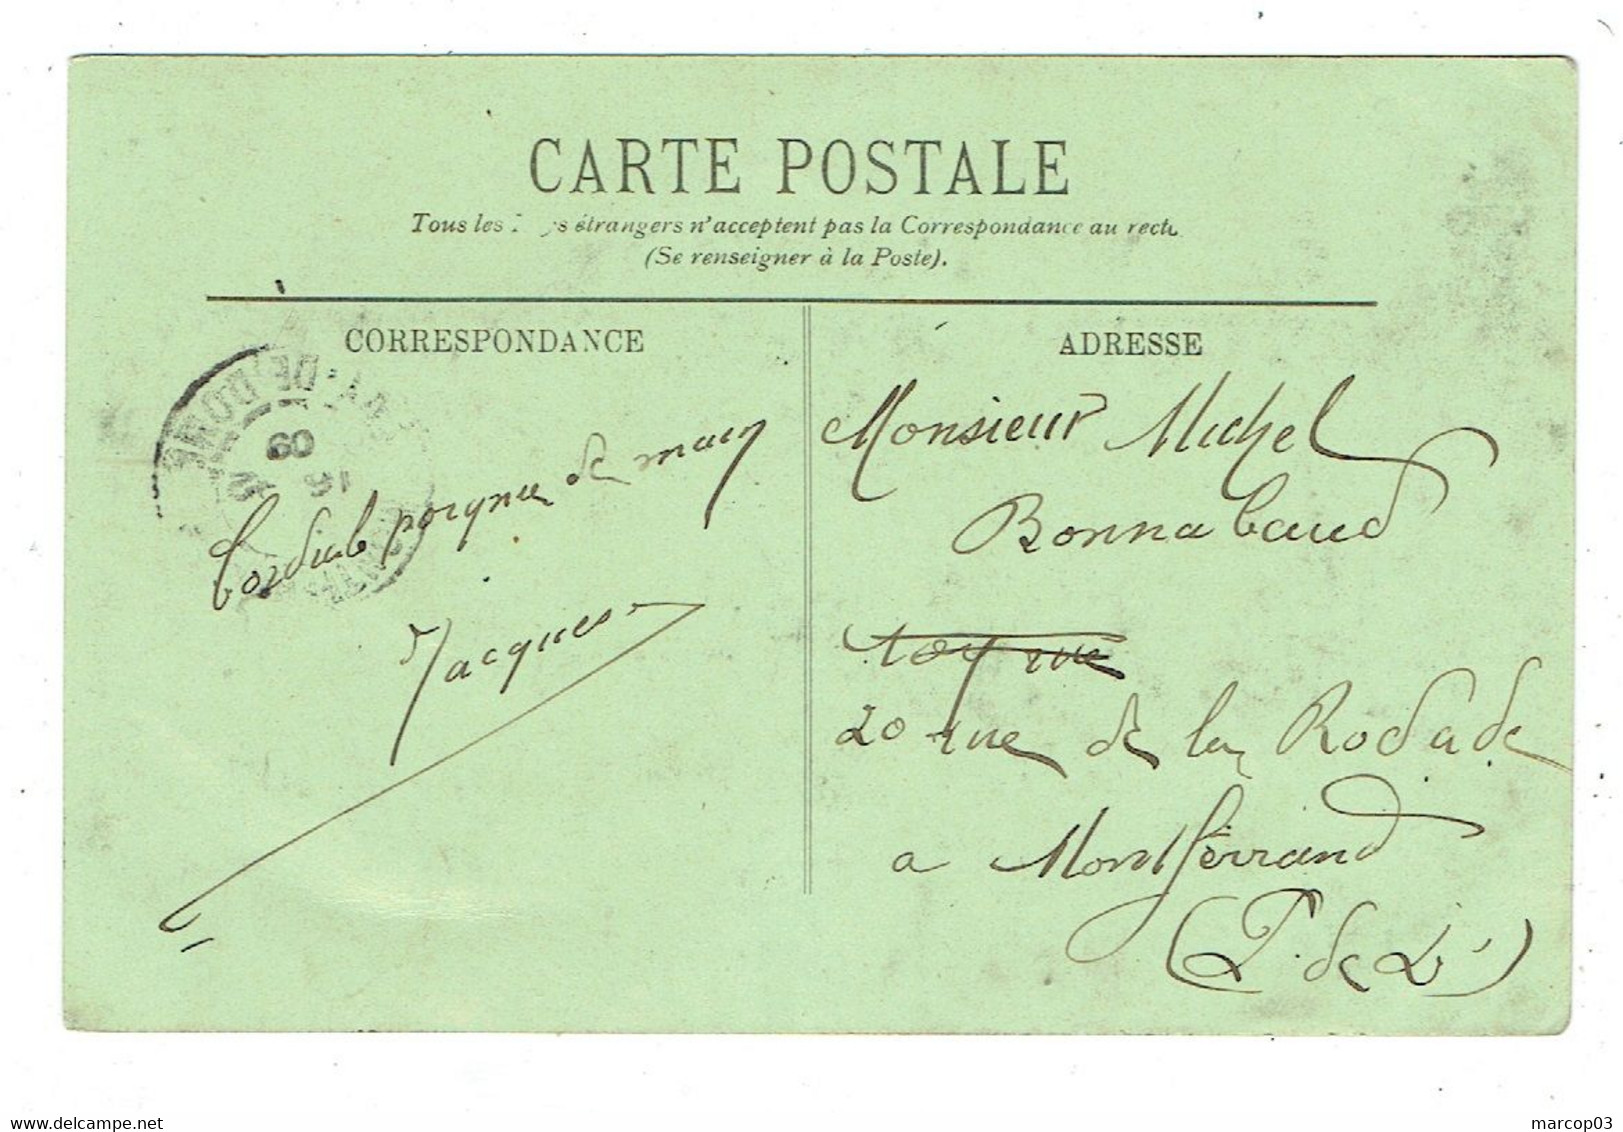 CARTE POSTALE
Tous les étrangers n'acceptent pas la Correspondance au recto
(Se renseigner à la Poste).
CORRESPONDANCE
ADRESSE
PUY-DE-DOME
09
16
Cordiale poignée de main
Jacques
Monsieur Michel
Bonnabaud
rue
20 rue de la Rodade
a Montferrand
(P. de D)
marcop03